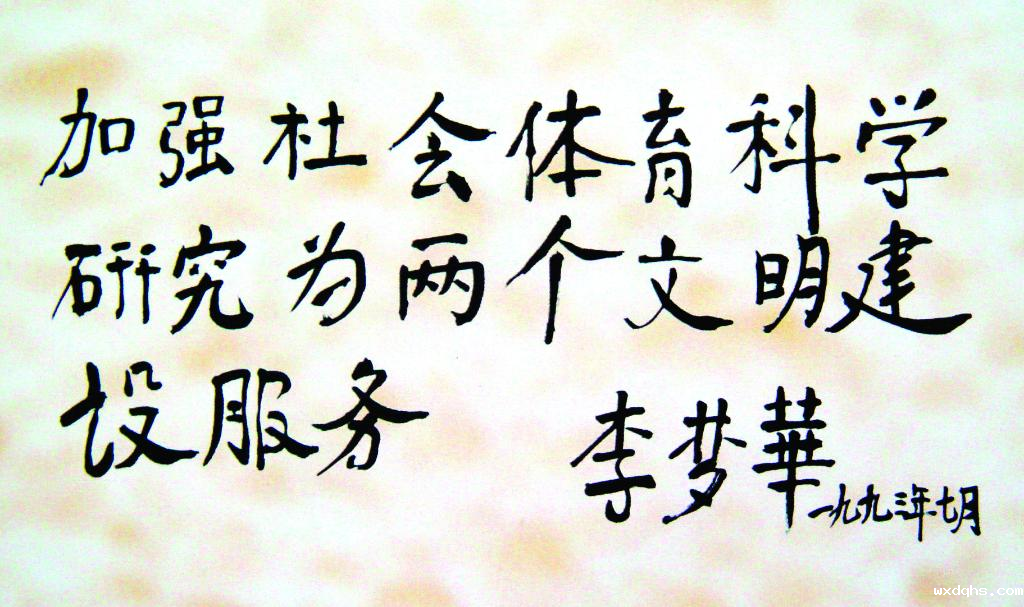 加强社会体育科学
研究为两个文明建
设服务
李梦華
一九九三年七月
wxdqhs.com